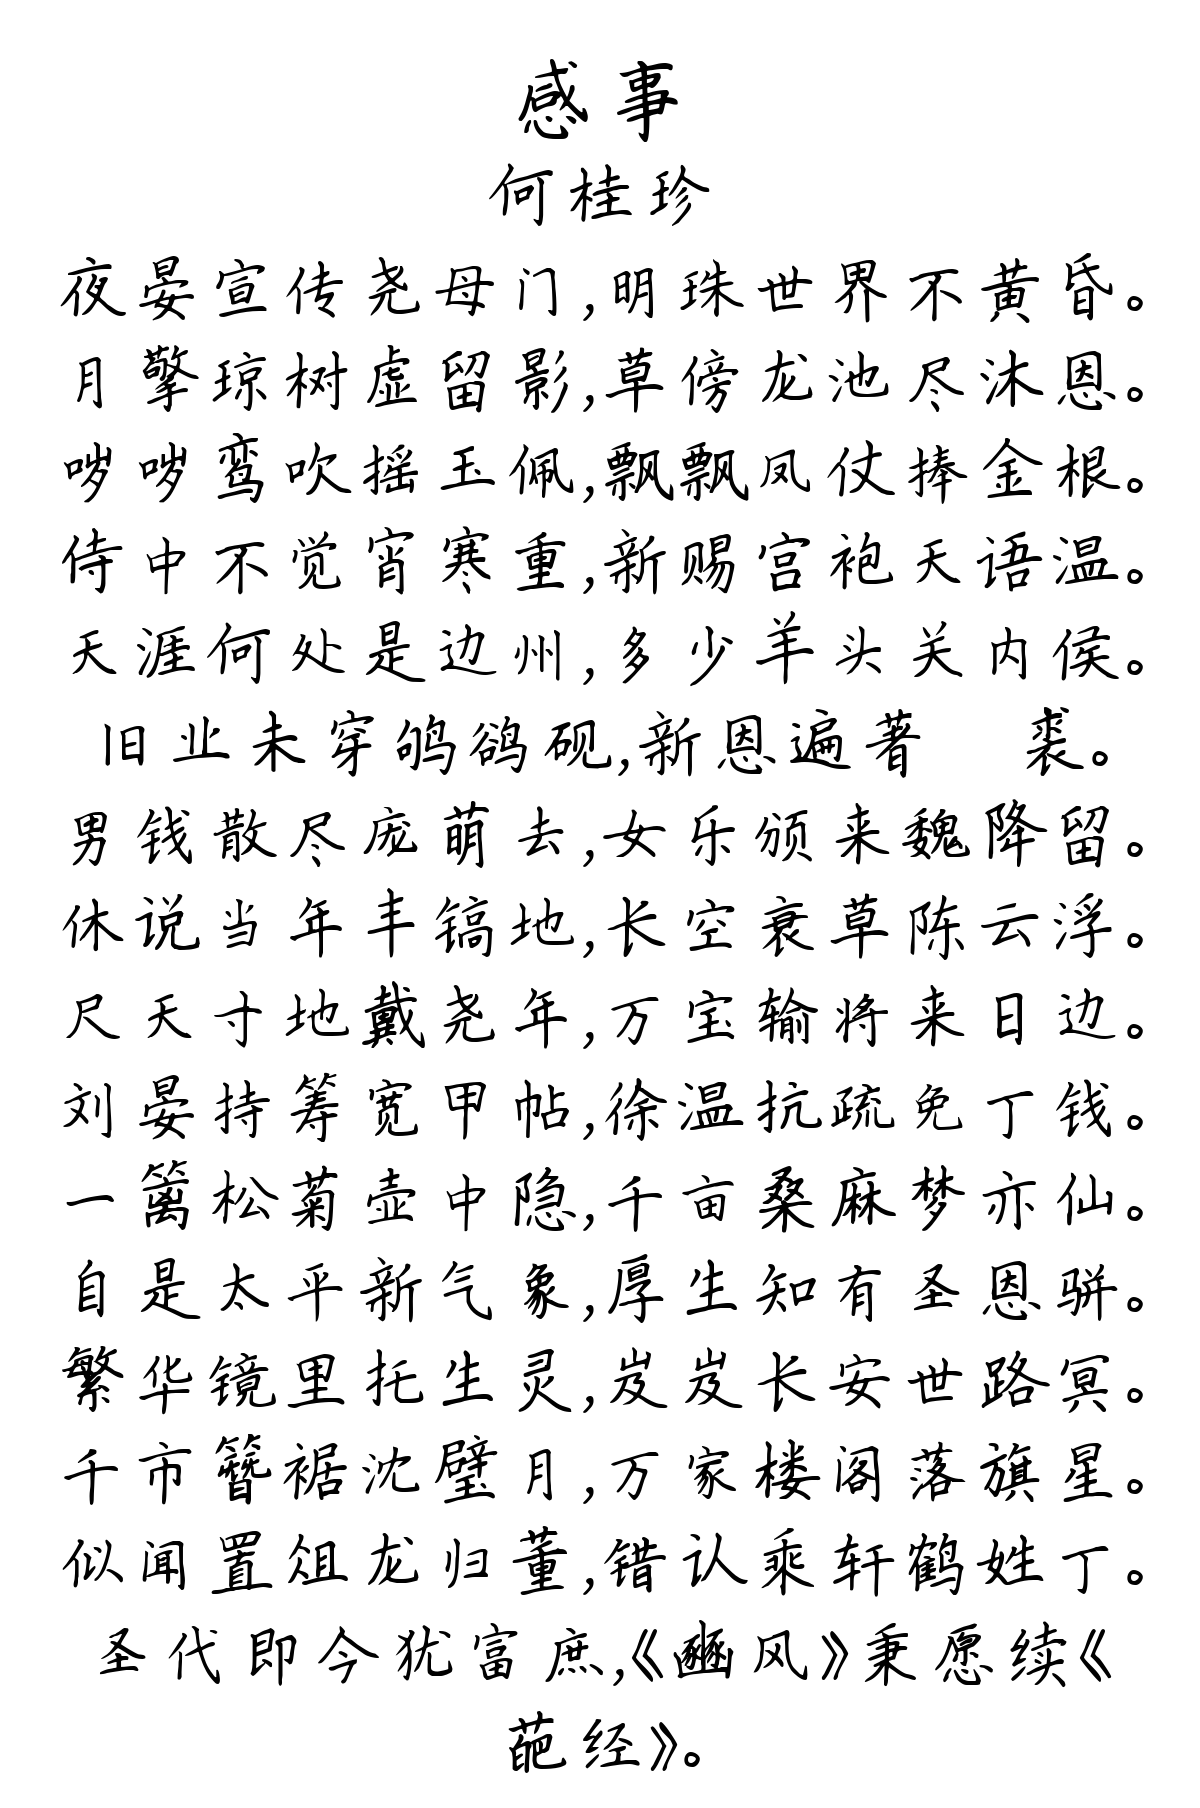 感事
何桂珍
夜晏宣传尧母门,明珠世界不黄昏。
月擎琼树虚留影,草傍龙池尽沐恩。
哕哕鸾吹摇玉佩,飘飘凤仗捧金根。
侍中不觉宵寒重,新赐宫袍天语温。
天涯何处是边州,多少羊头关内侯。
旧业未穿鸲鹆砚,新恩遍著 裘。
男钱散尽庞萌去,女乐颁来魏降留。
休说当年丰镐地,长空衰草陈云浮。
尺天寸地戴尧年,万宝输将来日边。
刘晏持筹宽甲帖,徐温抗疏免丁钱。
一篱松菊壶中隐,千亩桑麻梦亦仙。
自是太平新气象,厚生知有圣恩骈。
繁华镜里托生灵,岌岌长安世路冥。
千市簪裾沈璧月,万家楼阁落旗星。
似闻置俎龙归董,错认乘轩鹤姓丁。
圣代即今犹富庶,《豳风》秉愿续《
葩经》。